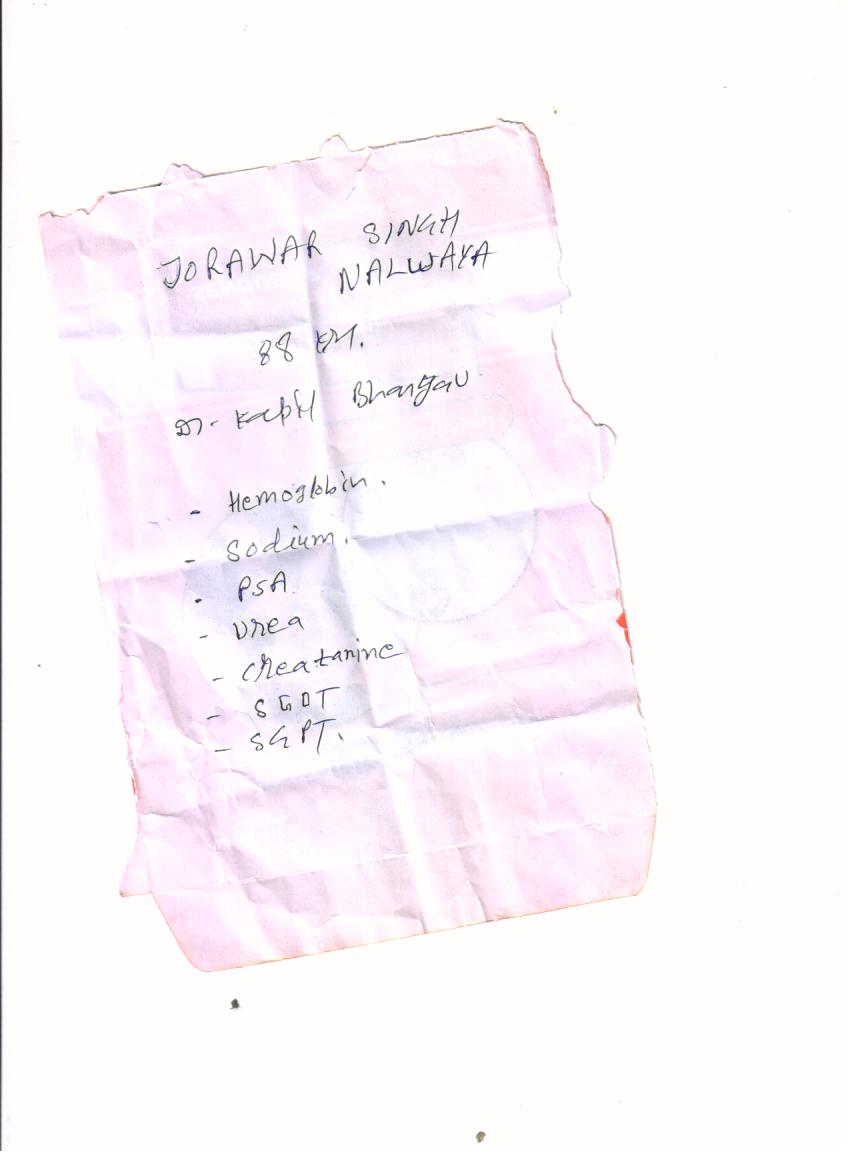 JORAWAR SINGH
NALWAYA
88
Dr. Kapil Bhargav
- Hemoglobin.
- Sodium.
- PSA
- Urea
- Creatanine
- SGOT
- SGPT.